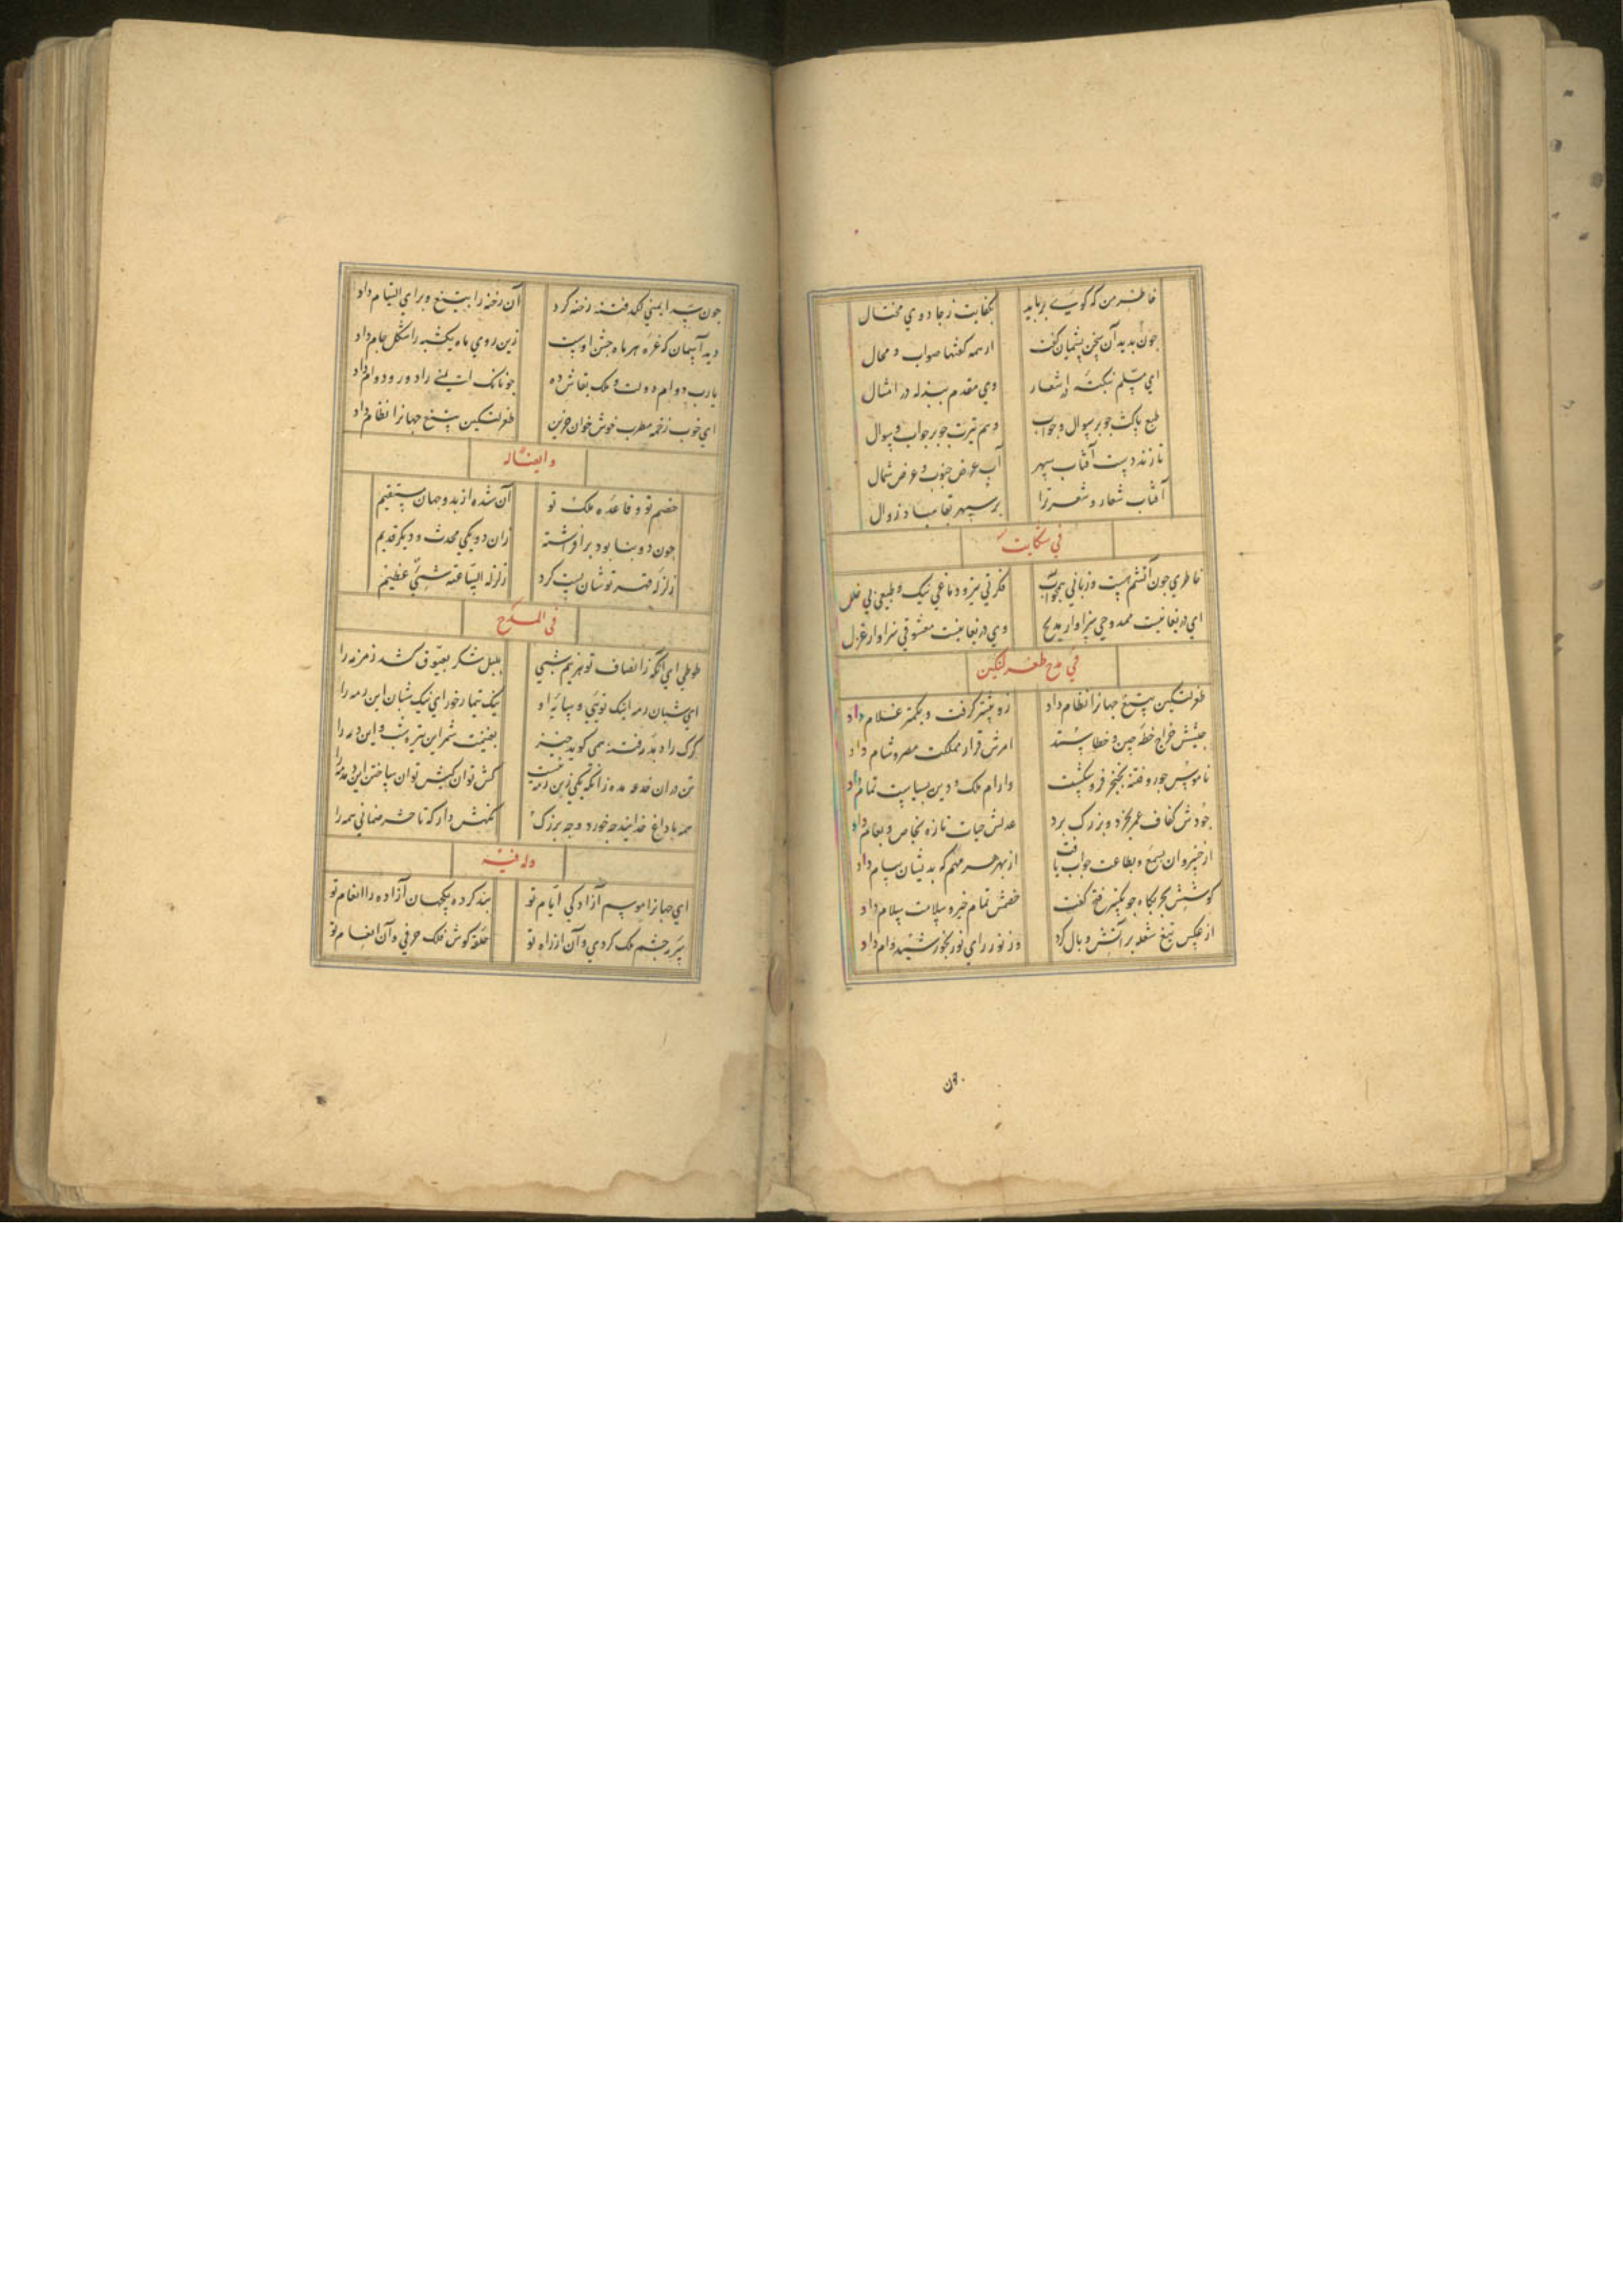 خاطر من که کوی برباید بکفایت ز جادوی محتال
چون بدید آن سخن پشیمان کفت از همه کفتها صواب و محال
ای مسلم بنکته در اشعار وی مقدم ببذله در امثال
طبع پاکت چو بر سوال و جواب وهم تیزت چو بر جواب و سوال
تا زند دست آفتاب سپهر آب عرض جنوب و عرض شمال
آفتاب شعار و شعر ترا بر سپهر بقا مباد زوال
فی شکایت
خاطری چون آتشم هست و زبانی همچو آب فکرتی تیز و دماغی نیک و طبعی بی خلل
ای دریغا نیست ممدوحی سزاوار مدیح وی دریغا نیست معشوقی سزاوار غزل
فی مدح طغرلتکین
طغرلتکین بتیغ جهانرا نظام داد زو بیشتر کرفت و بکمتر غلام داد
جیشش خراج خطه چین و خطا ستد امرش قرار مملکت مصر و شام داد
ناموس جور و فتنه بخنجر فرو شکست وارام ملک و دین بسیاست تمام داد
جودش کفاف عمر بخرد و بزرک برد عدلش حیات تازه بخاص و بعام داد
از خسروان بسمع و بطاعت جواب یافت از بهر هر مهم که بدیشان پیام داد
کوشش بحربکاه چو تکبیر فتح کفت خصمش تمام خیر و سلامت سلام داد
از عکس تیغ شعله بر آتش وبال کرد وز نور رای نور بخورشید وام داد
چون
چون سر ایمنی لکد فتنه رخنه کرد آن رخنه را بتیغ و برای التیام داد
دید آسمان که غره هر ماه جشن اوست زین روی ماه یکشبه را شکل جام داد
یارب دوام دولت و ملک بقاش ده چونانک ایمنی را دور و دوام داد
ای خوب زخمه مطرب خوش خوان حزین طغرلتکین بتیغ جهانرا نظام داد
و ایضا له
خصم تو و قاعده ملک تو آن شده از بد و جهان مستقیم
چون دو بنا بود بر افراشته زان دو یکی محدث و دیکر قدیم
زلزله قهر تو شان پست کرد زلزلة الساعة شیء عظیم
فی المدح
طوطی ای آنکه ز انصاف تو هر نیم شبی بلبل شکر بعیوق کشد زمزمه را
ای شبان رمه اینک تویی و سایه او نیک تیمار خور ای نیک شبان این رمه را
کرک را دیده رفته همی کوید خیز بغنیمت شمر این تیره شب و این دمه را
تن دران خدعه مده زانکه یکی زین رمه نیست کش توان کشتن توان ساختن این دمدمه را
همه با داغ خدایند چه خورد و چه بزرک نکهش دار که تا حشر ضمانی همه را
وله فیه
ای جهانرا موسم آزادکی ایام تو بنده کرده یکجهان آزاده را انعام تو
سر به چشم ملک کردی و آن از راه تو حلقه کوش فلک حرفی و آن از نام تو